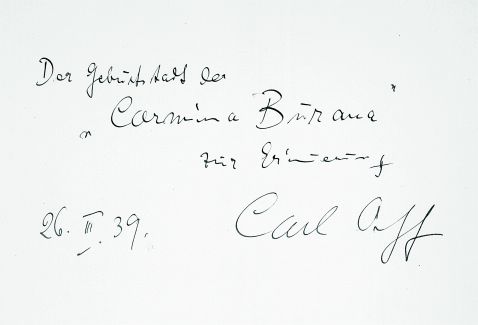 Der Geburtsstadt der
„Carmina Burana"
zur Erinnerung
26. III. 39.
Carl Orff